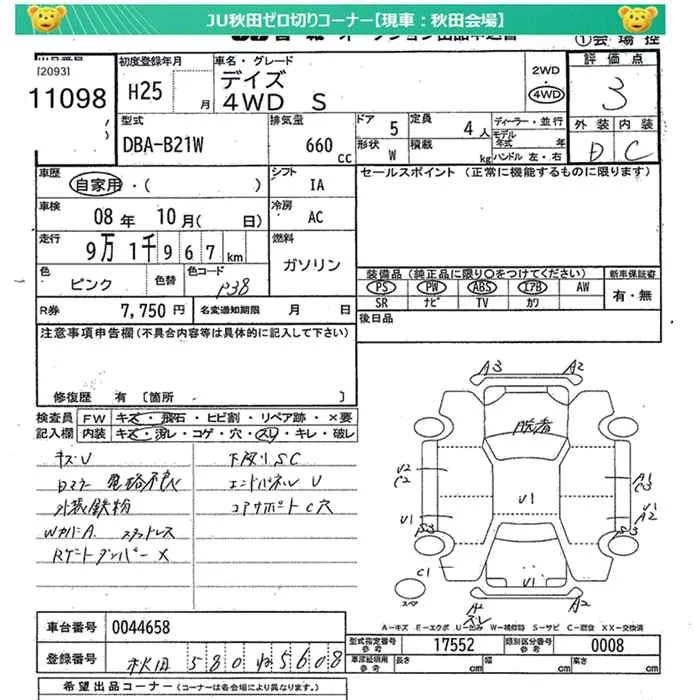 JU秋田ゼロ切りコーナー【現車：秋田会場】
①会場控
[2093]
11098
初度登録年月
H25
月
車名・グレード
デイズ
4WD S
2WD
・
4WD
評価点
3
外装 内装
D C
型式
DBA-B21W
排気量
660
CC
ドア
5
定員
4人
形状
W
積載
kg
ディーラー・並行
モデル
年式 年
ハンドル 左・右
車歴
自家用・( )
シフト
IA
車検
08年 10月( 日)
冷房
AC
走行
9万 1千967km
燃料
ガソリン
色
ピンク
色替
色コード
P38
セールスポイント (正常に機能するものに限ります)
装備品(純正品に限り○をつけてください)
新車保証書
PS PW ABS エアB AW
SR ナビ TV カワ
有・無
R券
7,750円
名変通知期限 月 日
後日品
注意事項申告欄(不具合内容等は具体的に記入して下さい)
修復歴 有 〔箇所 〕
検査員
記入欄
FW キズ・飛石・ヒビ割・リペア跡・×要
内装 キズ・汚レ・コゲ・穴・スレ・キレ・破レ
キズU
下廻りSC
エンドパネル U
外装鉄粉
コアサポートC穴
WカバーA スタッドレス
Rゲートダンパー×
A3
A2
脱着
U2
C2
A1
C3
U1
U1
A2
S3
S3
C1
U1
スペア
A2
スレ
A2
A-キズ E-エクボ U-凹み W-補修跡 S-サビ C-腐食 XX-交換済
車台番号
0044658
登録番号
秋田 580 ね 5608
型式指定番号
参考
17552
類別区分番号
参考
0008
車庫証明用
参考
長さ
cm
幅
cm
高さ
cm
希望出品コーナー(コーナーは各会場により異なります。)